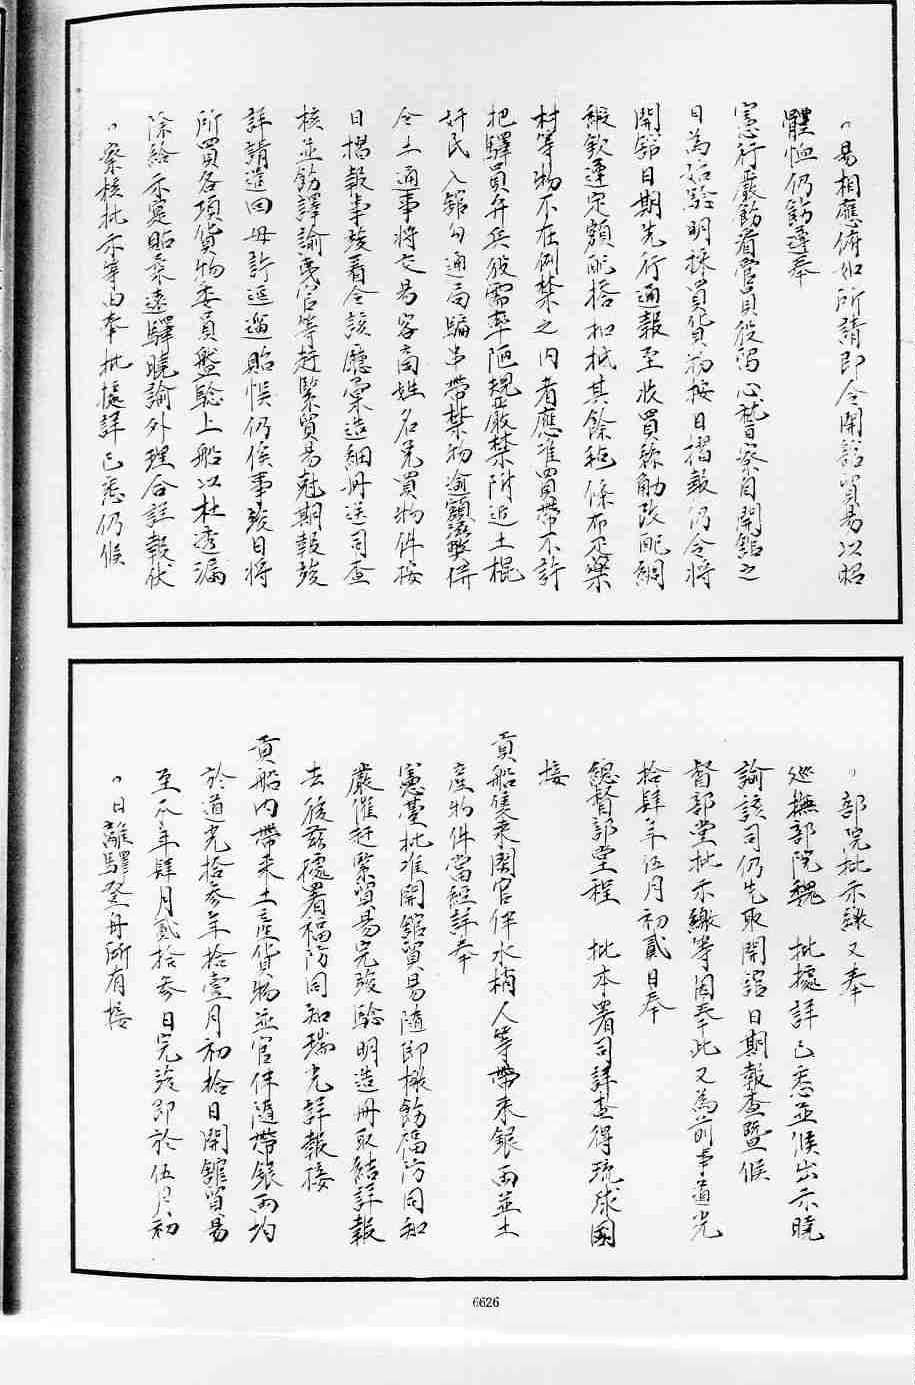 〃易相應俯如所請即令開舘貿易以昭
體恤仍飭遵奉
憲行嚴飭看管員役留心稽察自開舘之
日為始驗明採買貨物按日摺報仍令將
開舘日期先行通報至收買絲觔改配綢
緞欽遵定額配搭扣抵其餘毡條布疋藥
材等物不在例禁之內者應准買帶不許
把驛員弁兵役需索陋規嚴禁附近土棍
奸民入舘勾通局騙串帶禁物逾額
令土通事將交易客商姓名兌買物件按
日摺報事竣着令該廳彙造細冊送司查
核並飭譯諭夷官等赶緊貿易尅期報竣
詳請遣回毋許逗遛貽悞仍俟事竣日將
所買各項貨物委員盤驗上船以杜透漏
除給示實貼柔遠驛曉諭外理合詳報伏
〃察核批示等由奉批據詳已悉仍候
〃部院批示繳又奉
巡撫部院魏 批據詳已悉並候出示曉
諭該司仍先取開舘日期報查曁候
督部堂批示繳等因奉此又為前事道光
拾肆年伍月初貳日奉
總督部堂程 批本署司詳查得琉球國
接
貢船隻來閩官伴水梢人等帶來銀両並土
產物件當經詳奉
憲臺批准開舘貿易隨即檄飭福防同知
嚴催赶緊貿易完竣驗明造冊取結詳報
去後茲據署福防同知瑞光詳報接
貢船內帶來土產貨物並官伴隨帶銀両均
於道光拾參年拾壹月初拾日開舘貿易
至本年肆月貳拾叁日完竣即於伍月初
〃日離驛登舟所有接
6626